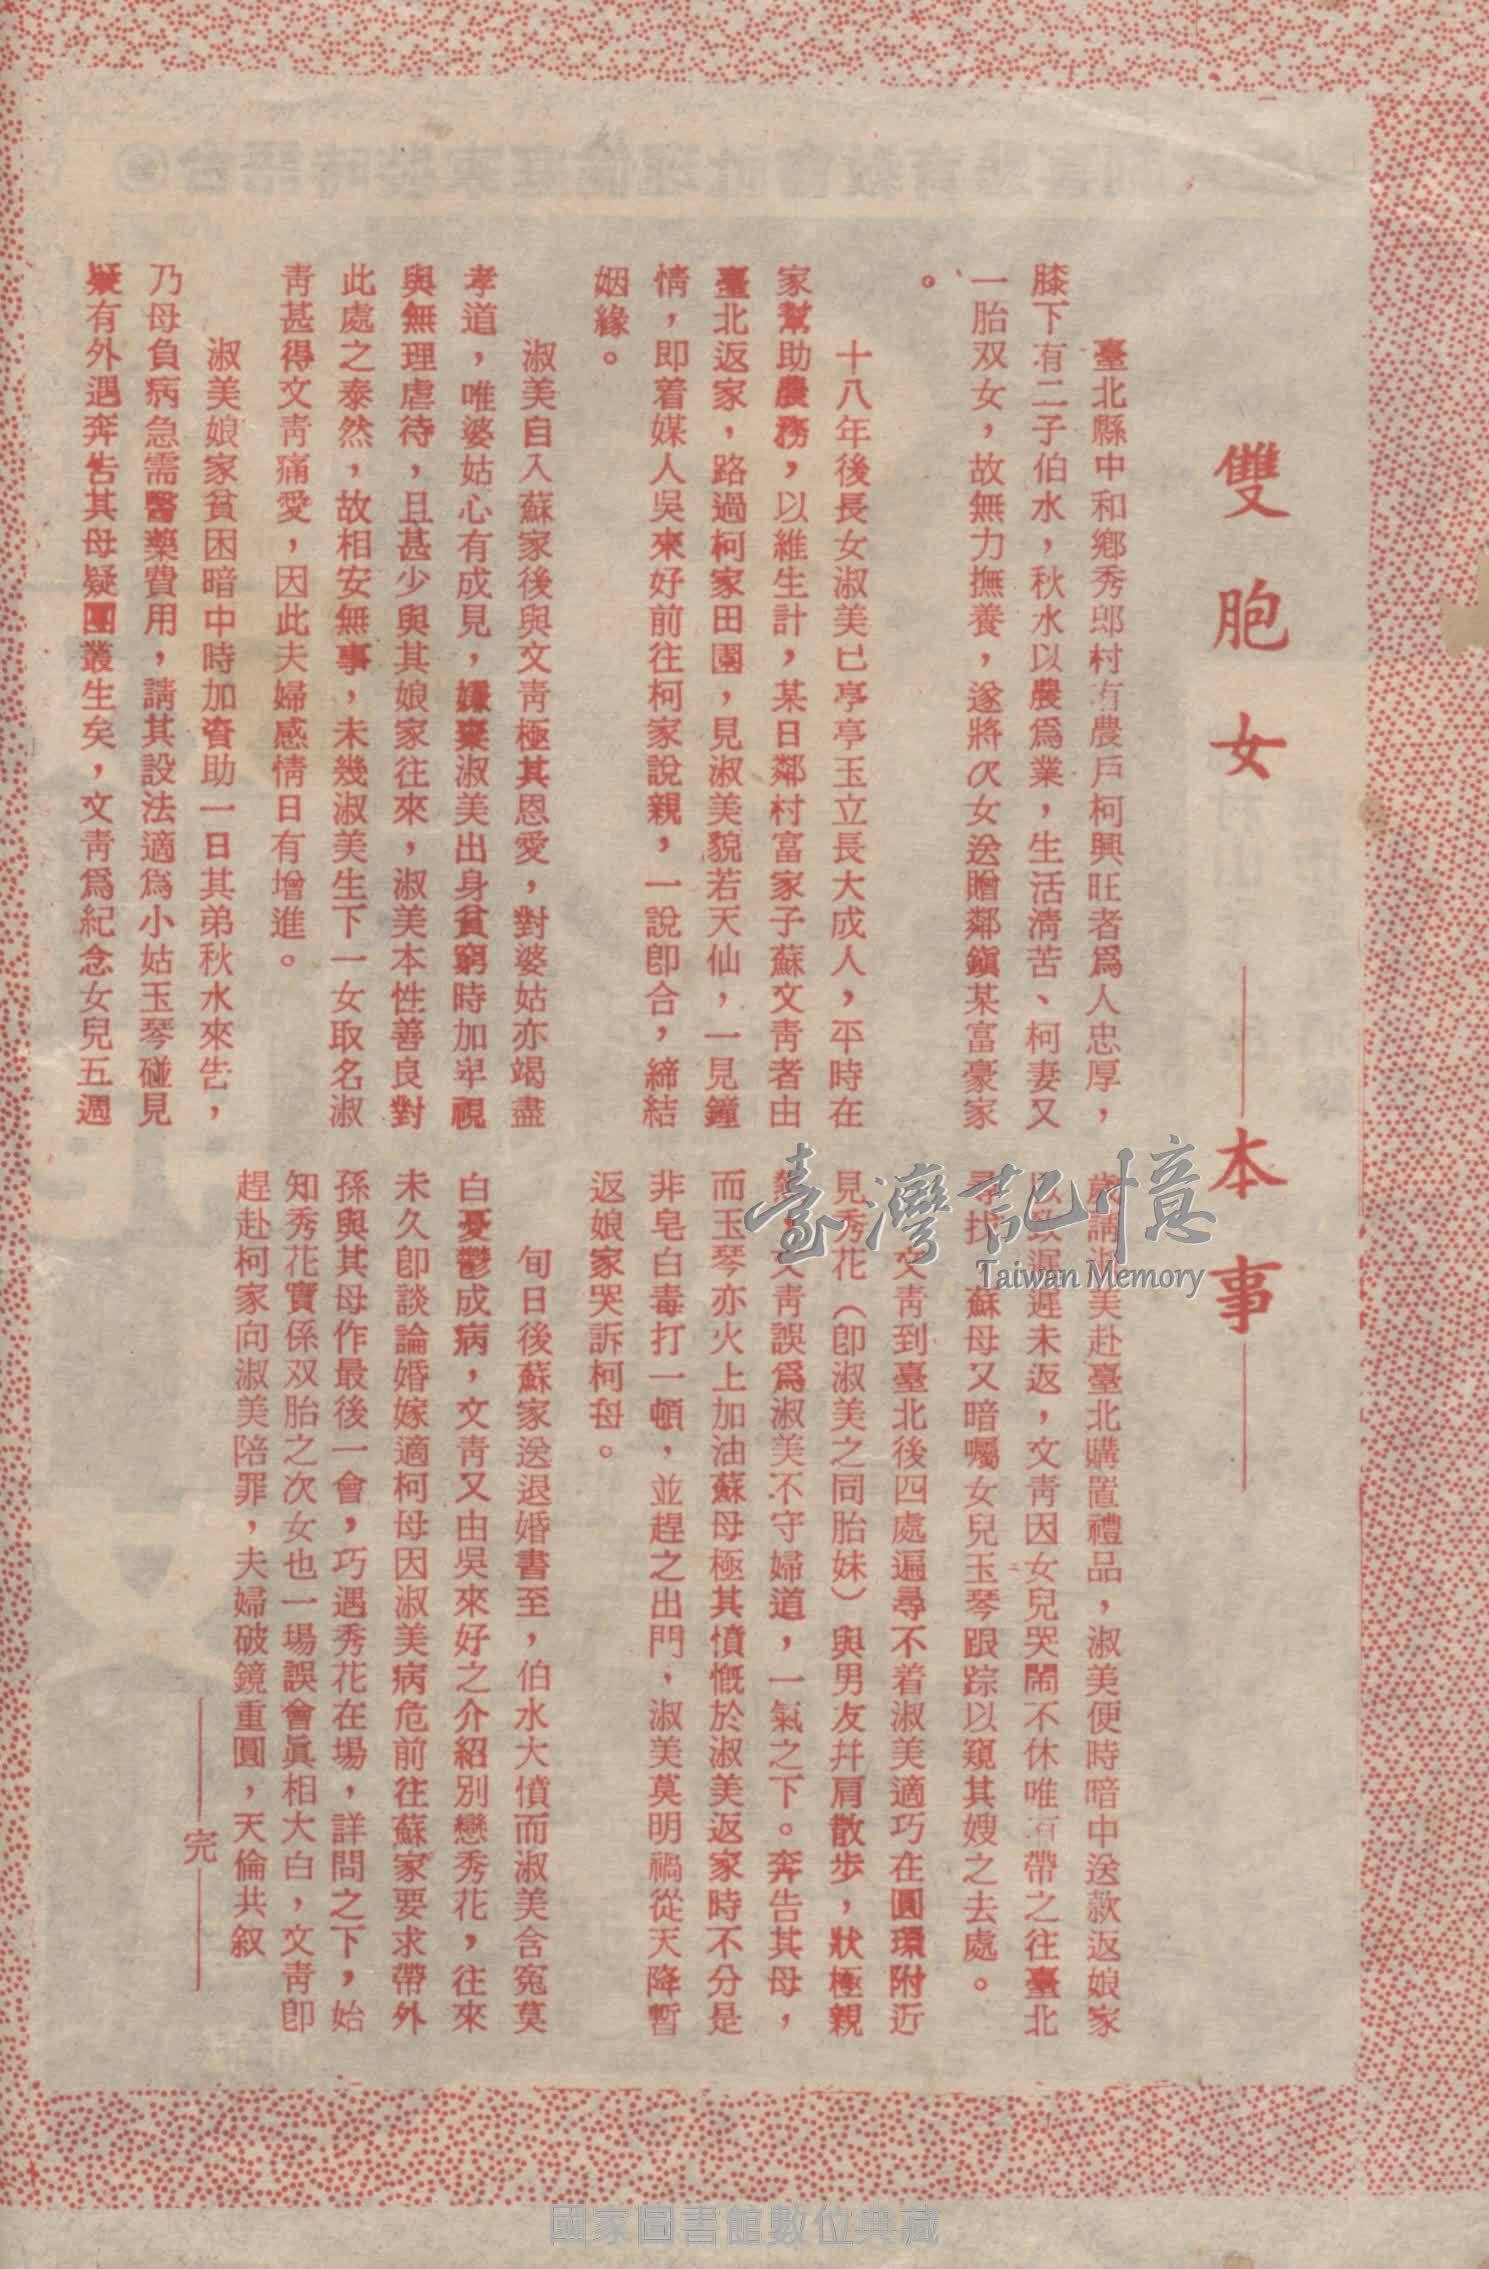 雙胞女
——本事——
臺北縣中和鄕秀郎村有農戶柯興旺者爲人忠厚，
膝下有二子伯水，秋水以農爲業，生活淸苦、柯妻又
一胎双女，故無力撫養，遂將次女送贈鄰鎭某富豪家
。
十八年後長女淑美已亭亭玉立長大成人，平時在
家幫助農務，以維生計，某日鄰村富家子蘇文靑者由
臺北返家，路過柯家田園，見淑美貌若天仙，一見鐘
情，即着媒人吳來好前往柯家說親，一說卽合，締結
姻緣。
淑美自入蘇家後與文靑極其恩愛，對婆姑亦竭盡
孝道，唯婆姑心有成見，嫌棄淑美出身貧窮時加卑視
與無理虐待，且甚少與其娘家往來，淑美本性善良對
此處之泰然，故相安無事，未幾淑美生下一女取名淑
靑甚得文靑痛愛，因此夫婦感情日有增進。
淑美娘家貧困暗中時加資助一日其弟秋水來告，
乃母負病急需醫藥費用，請其設法適爲小姑玉琴碰見
疑有外遇奔告其母疑團叢生矣，文靑爲紀念女兒五週
歲請淑美赴臺北購置禮品，淑美便時暗中送款返娘家
以致遲遲未返，文靑因女兒哭鬧不休唯有帶之往臺北
尋找，蘇母又暗囑女兒玉琴跟踪以窺其嫂之去處。
文靑到臺北後四處遍尋不着淑美適巧在圓環附近
見秀花（卽淑美之同胎妹）與男友幷肩散步，狀極親
熱，文靑誤爲淑美不守婦道，一氣之下。奔告其母，
而玉琴亦火上加油蘇母極其憤慨於淑美返家時不分是
非皂白毒打一頓，並趕之出門，淑美莫明禍從天降暫
返娘家哭訴柯母。
旬日後蘇家送退婚書至，伯水大憤而淑美含寃莫
白憂鬱成病，文靑又由吳來好之介紹別戀秀花，往來
未久卽談論婚嫁適柯母因淑美病危前往蘇家要求帶外
孫與其母作最後一會，巧遇秀花在場，詳問之下，始
知秀花實係双胎之次女也一場誤會眞相大白，文靑卽
趕赴柯家向淑美陪罪，夫婦破鏡重圓，天倫共叙
——完——
臺灣記憶
Taiwan Memory
國家圖書館數位典藏